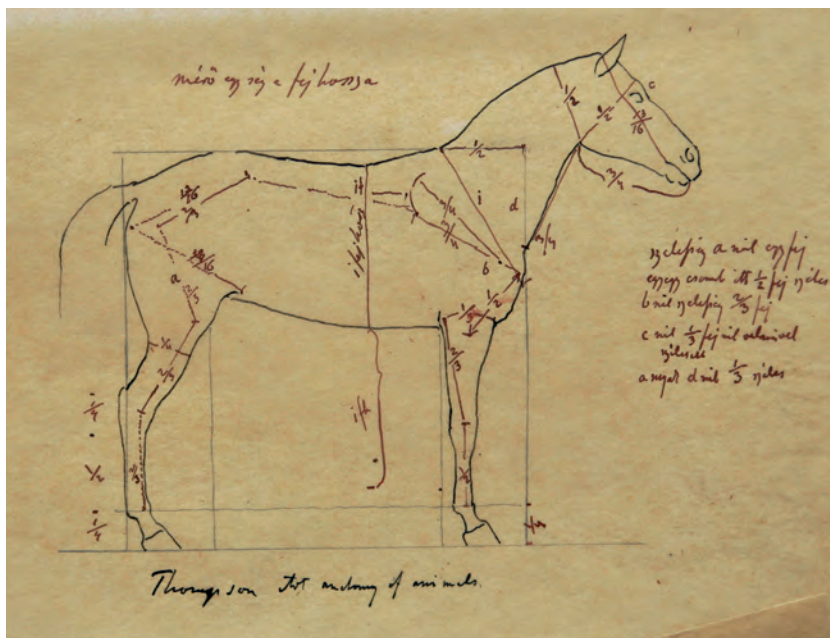 mérő egység a fej hossza
1/2
c
1/2
13/16
1/2
2/3
i
d
3/4
3/4
3/4
b
1/2
1/3
2/3
a
2/3
13/16
2/3
1/4
2/3
1/4
1/2
1/4
szélesség a nál egy fej
egyegy comb itt 1/2 fej széles
b nél szélesség 2/3 fej
c nél 1/3 fejnél valamivel
szélesebb
a nyak d nél 1/3 széles
Thompson Art anatomy of animals.